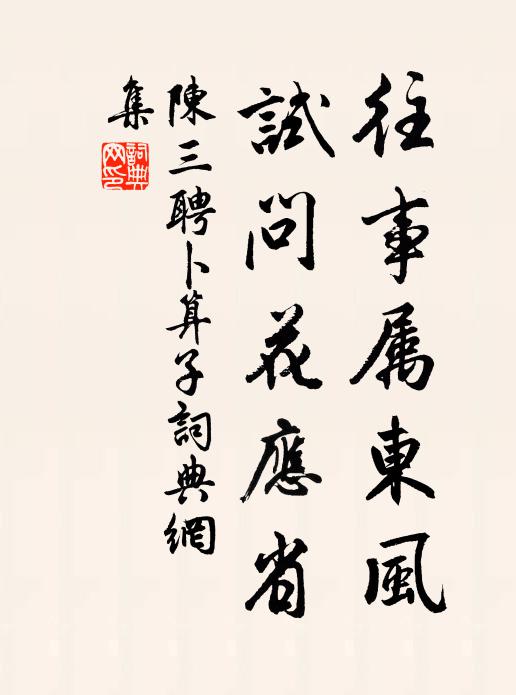 往事属東風
試問花應省
陳三聘卜算子詞典網
集
詞典網印